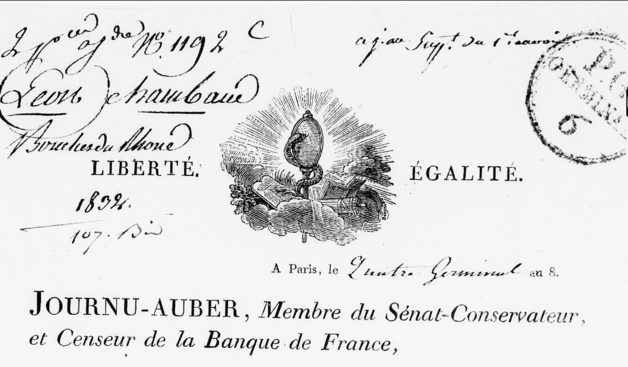 N.° 1192 C
Leon Chambaud
Bouches du Rhone
LIBERTÉ. ÉGALITÉ.
1832.
107. Bis
6
A Paris, le Quatre Germinal an 8.
JOURNU-AUBER, Membre du Sénat-Conservateur,
et Censeur de la Banque de France,